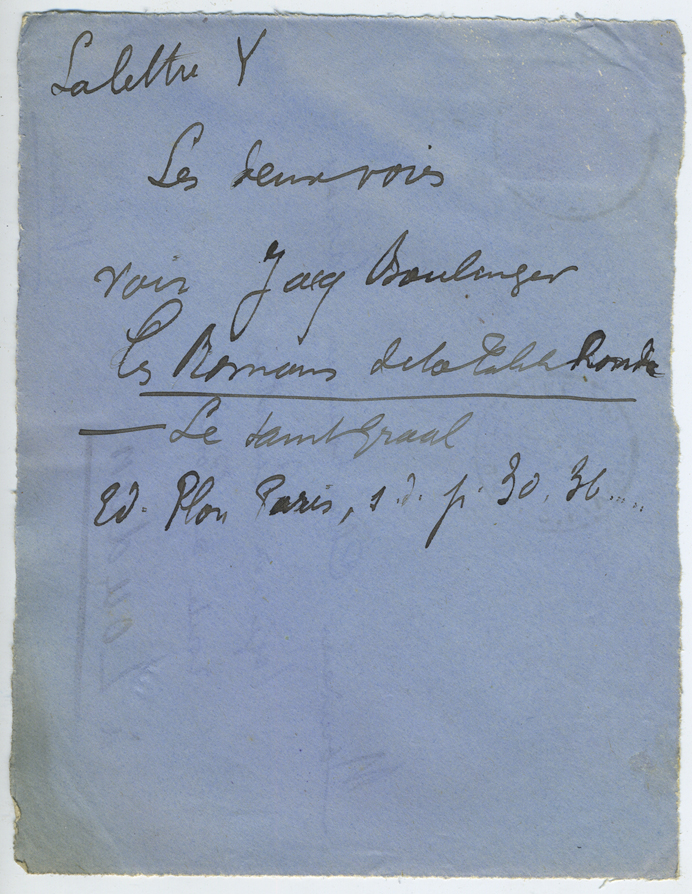 La lettre Y
Les deux voies
voir Jacq Boulenger
Les Romans de la Table Ronde
— Le saint Graal
Ed. Plon Paris, s.d. p. 30. 36.....